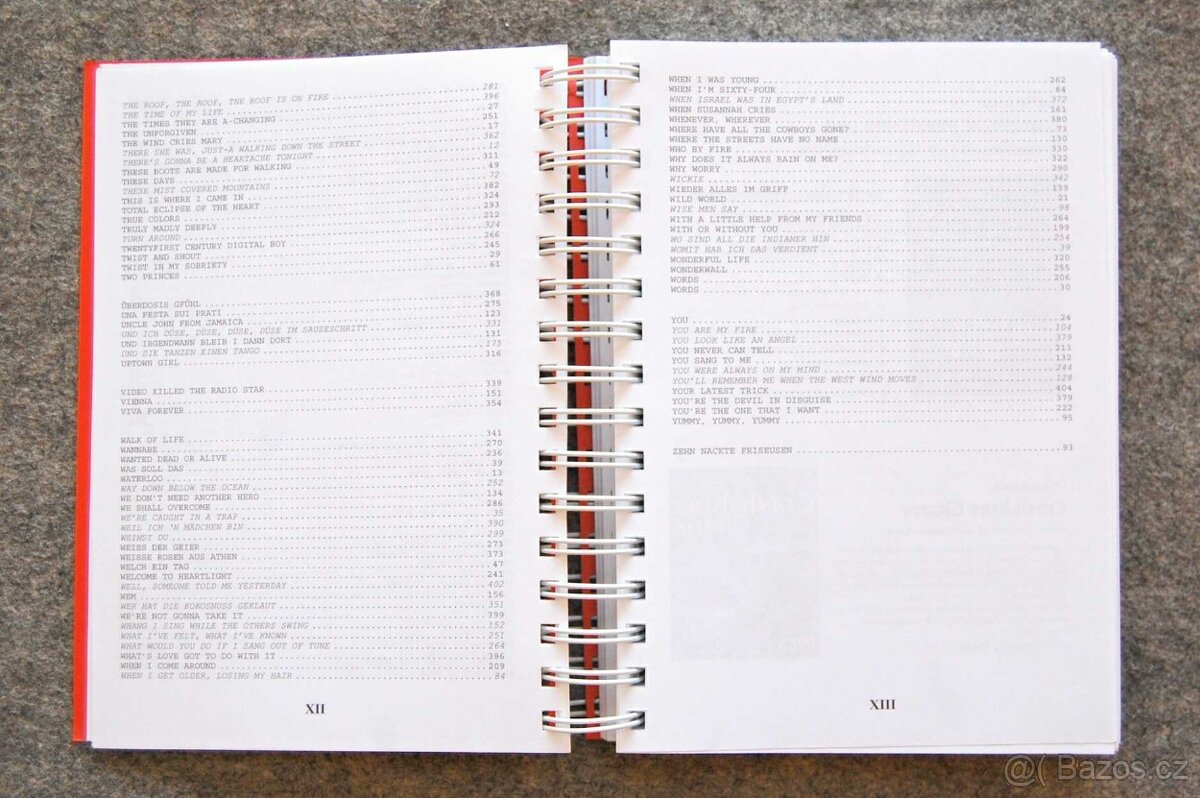 THE ROOF, THE ROOF, THE ROOF IS ON FIRE ... 281
THE TIME OF MY LIFE ... 396
THE TIMES THEY ARE A-CHANGING ... 27
THE UNFORGIVEN ... 251
THE WIND CRIES MARY ... 17
THERE SHE WAS, JUST-A WALKING DOWN THE STREET ... 362
THERE'S GONNA BE A HEARTACHE TONIGHT ... 12
THESE BOOTS ARE MADE FOR WALKING ... 311
THESE DAYS ... 49
THESE MIST COVERED MOUNTAINS ... 72
THIS IS WHERE I CAME IN ... 382
TOTAL ECLIPSE OF THE HEART ... 324
TRUE COLORS ... 293
TRULY MADLY DEEPLY ... 212
TURN AROUND ... 324
TWENTYFIRST CENTURY DIGITAL BOY ... 266
TWIST AND SHOUT ... 245
TWIST IN MY SOBRIETY ... 29
TWO PRINCES ... 61
ÜBERDOSIS GFÜHL ... 368
UNA FESTA SUI PRATI ... 275
UNCLE JOHN FROM JAMAICA ... 123
UND ICH DÜSE, DÜSE, DÜSE, DÜSE IM SAUSESCHRITT ... 331
UND IRGENDWANN BLEIB I DANN DORT ... 131
UND SIE TANZEN EINEN TANGO ... 175
UPTOWN GIRL ... 316
VIDEO KILLED THE RADIO STAR ... 339
VIENNA ... 151
VIVA FOREVER ... 354
WALK OF LIFE ... 341
WANNABE ... 270
WANTED DEAD OR ALIVE ... 236
WAS SOLL DAS ... 39
WATERLOO ... 13
WAY DOWN BELOW THE OCEAN ... 252
WE DON'T NEED ANOTHER HERO ... 134
WE SHALL OVERCOME ... 286
WE'RE CAUGHT IN A TRAP ... 35
WEIL ICH 'N MÄDCHEN BIN ... 390
WEINST DU ... 299
WEISS DER GEIER ... 273
WEISSE ROSEN AUS ATHEN ... 373
WELCH EIN TAG ... 47
WELCOME TO HEARTLIGHT ... 241
WELL, SOMEONE TOLD ME YESTERDAY ... 402
WEM ... 156
WER HAT DIE KOKOSNUSS GEKLAUT ... 351
WE'RE NOT GONNA TAKE IT ... 399
WHANG I SING WHILE THE OTHERS SWING ... 152
WHAT I'VE FELT, WHAT I'VE KNOWN ... 251
WHAT WOULD YOU DO IF I SANG OUT OF TUNE ... 264
WHAT'S LOVE GOT TO DO WITH IT ... 386
WHEN I COME AROUND ... 209
WHEN I GET OLDER, LOSING MY HAIR ... 84
XII
WHEN I WAS YOUNG ... 262
WHEN I'M SIXTY-FOUR ... 84
WHEN ISRAEL WAS IN EGYPT'S LAND ... 372
WHEN SUSANNAH CRIES ... 161
WHENEVER, WHEREVER ... 380
WHERE HAVE ALL THE COWBOYS GONE? ... 73
WHERE THE STREETS HAVE NO NAME ... 130
WHO BY FIRE ... 330
WHY DOES IT ALWAYS RAIN ON ME? ... 322
WHY WORRY ... 290
WICKIE ... 342
WIEDER ALLES IM GRIFF ... 139
WILD WORLD ... 21
WISE MEN SAY ... 98
WITH A LITTLE HELP FROM MY FRIENDS ... 264
WITH OR WITHOUT YOU ... 199
WO SIND ALL DIE INDIANER HIN ... 254
WOMIT HAB ICH DAS VERDIENT ... 39
WONDERFUL LIFE ... 320
WONDERWALL ... 255
WORDS ... 206
WORDS ... 30
YOU ... 24
YOU ARE MY FIRE ... 104
YOU LOOK LIKE AN ANGEL ... 379
YOU NEVER CAN TELL ... 213
YOU SANG TO ME ... 132
YOU WERE ALWAYS ON MY MIND ... 244
YOU'LL REMEMBER ME WHEN THE WEST WIND MOVES ... 128
YOUR LATEST TRICK ... 404
YOU'RE THE DEVIL IN DISGUISE ... 379
YOU'RE THE ONE THAT I WANT ... 222
YUMMY, YUMMY, YUMMY ... 95
ZEHN NACKTE FRISEUSEN ... 93
XIII
@( Bazos.cz